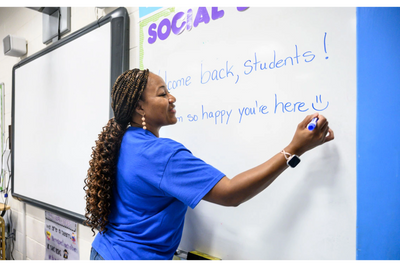 SOCIAL
come back, students!
so happy you're here